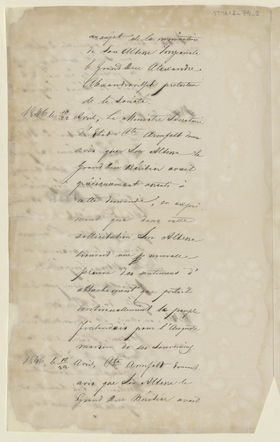 au sujet de la nomination
de Son Altesse Impériale
le Grand Duc Alexandre
Alexandrovitch protecteur
de la Société
1846 le 10/22 Avril, Le Ministre Secrétaire
d'Etat Cte Armfelt donne
avis que Son Altesse le
Grand Duc Héritier avait
gracieusement
cette demande, en
ment que dans cette
sollicitation Son Altesse
trouvait une nouvelle
preuve des sentimens d'
attachement que portait
continuellement le peuple
finlandais pour l'Auguste
maison de ses Souverains
1846, le Avril, Cte Armfelt donne
avis que Son Altesse le
Grand Duc Héritier avait